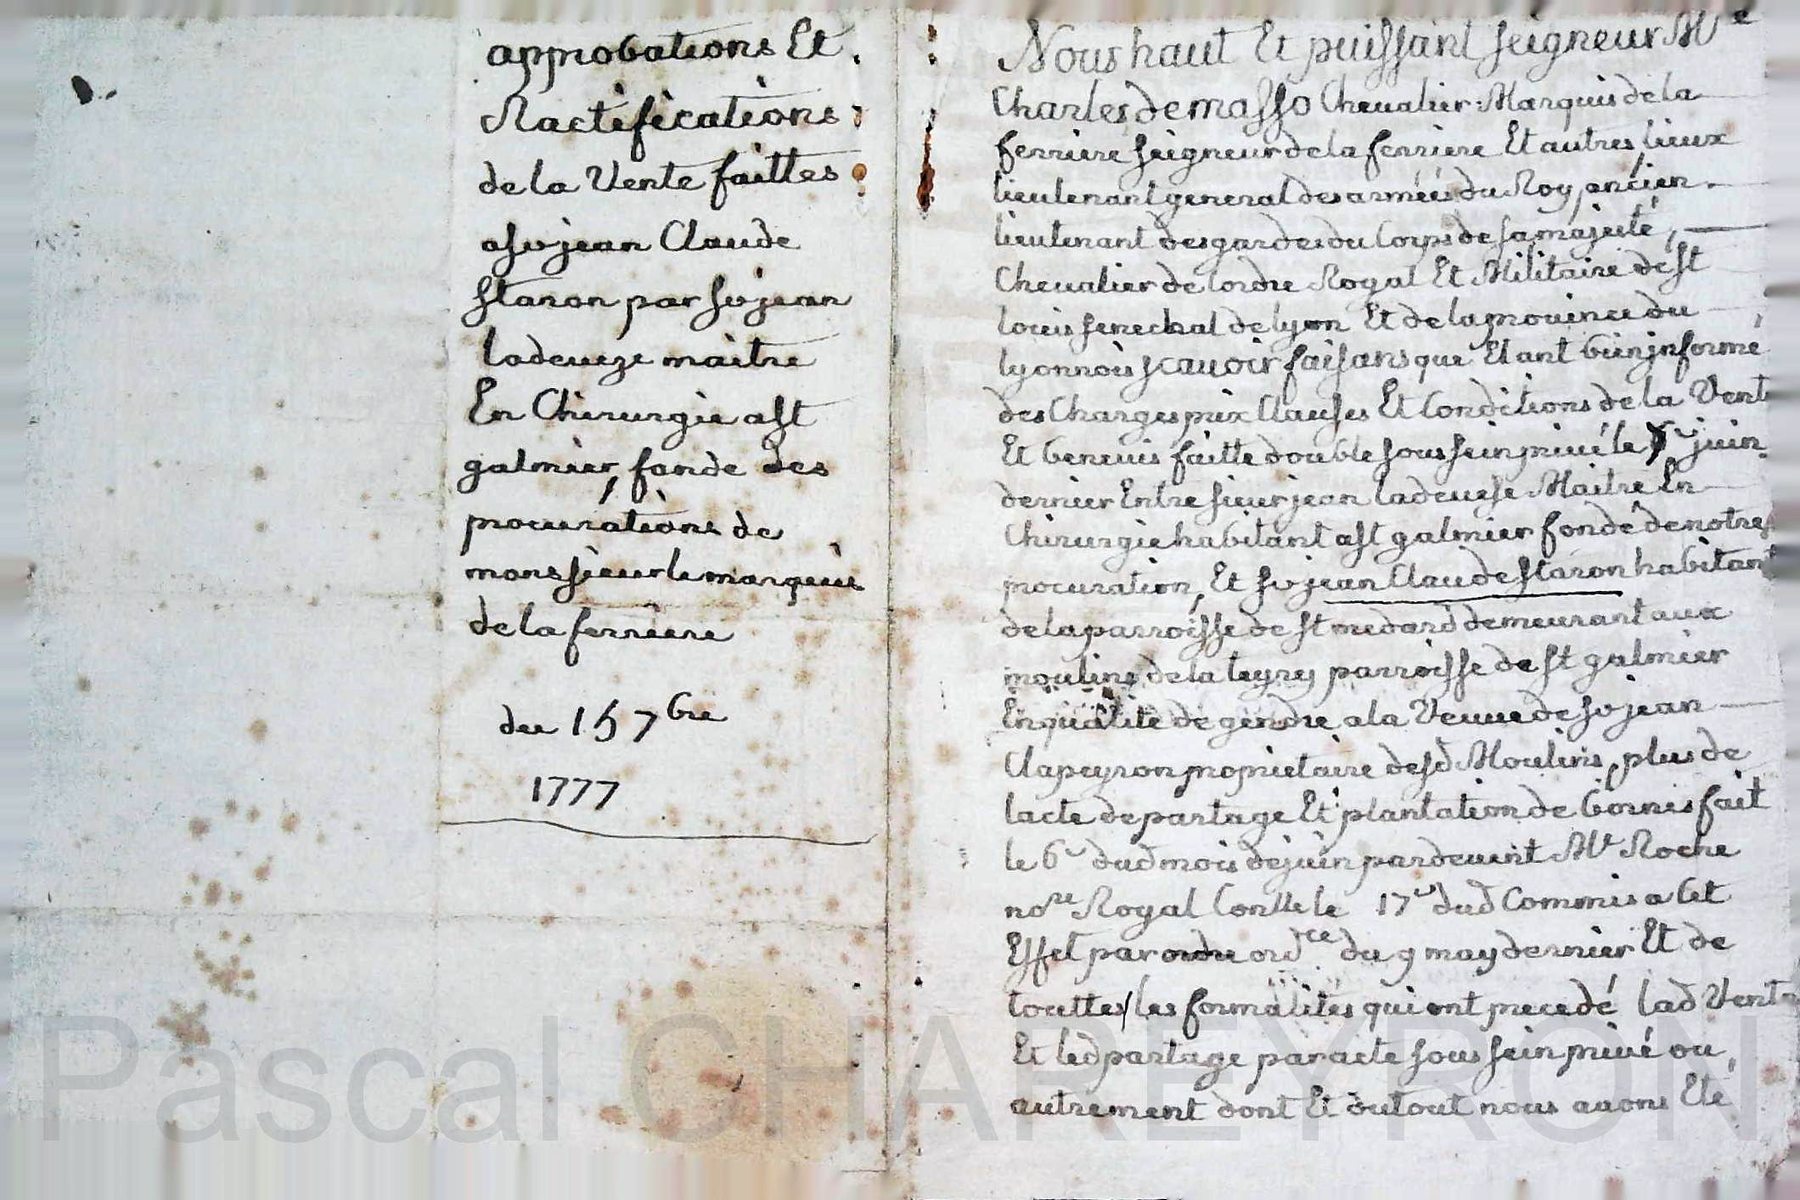 approbations Et
Ractifications
de la Vente faittes
a sr jean Claude
staron par sr jean
ladeveze maitre
En Chirurgie a st
galmier, fondé des
procurations de
monssieur le marquis
de la ferriere
du 15 7bre
1777
Nous haut Et puissant seigneur Mre
Charles de masso Chevalier Marquis de la
ferriere seigneur de la ferriere Et autres lieux
lieutenant general des armées du Roy, ancien
lieutenant des gardes du Corps de sa majesté,
Chevalier de lordre Royal Et Militaire de st
louis senechal de lyon Et de la province du
lyonnois scavoir faisans que Etant bien jnformé
des Charges prix Clauses Et Conditions de la Vent
Et benevis faitte double sous sein privé le juin
dernier Entre sieur jean ladevese Maitre En
Chirurgie habitant a st galmier fondé de notre
procuration, Et sr jean Claude staron habitant
de la parroisse de st medard demeurant aux
moulins de la teyrey parroisse de st galmier
En qualité de gendre a la Veuve de sr jean
Clapeyron proprietaire desd Moulins, plus de
lacte de partage Et plantation de bornes fait
le 6e dud mois de juin pardevent Me Roche
nore Royal Conllé le 17e dud Commis a Cet
Effet par ordce du 9 may dernier Et de
touttes les formalités qui ont precedé lad Vente
Et led partage par acte sous sein privé ou
autrement dont Et dutout nous avons Eté
Pascal CHAREYRON